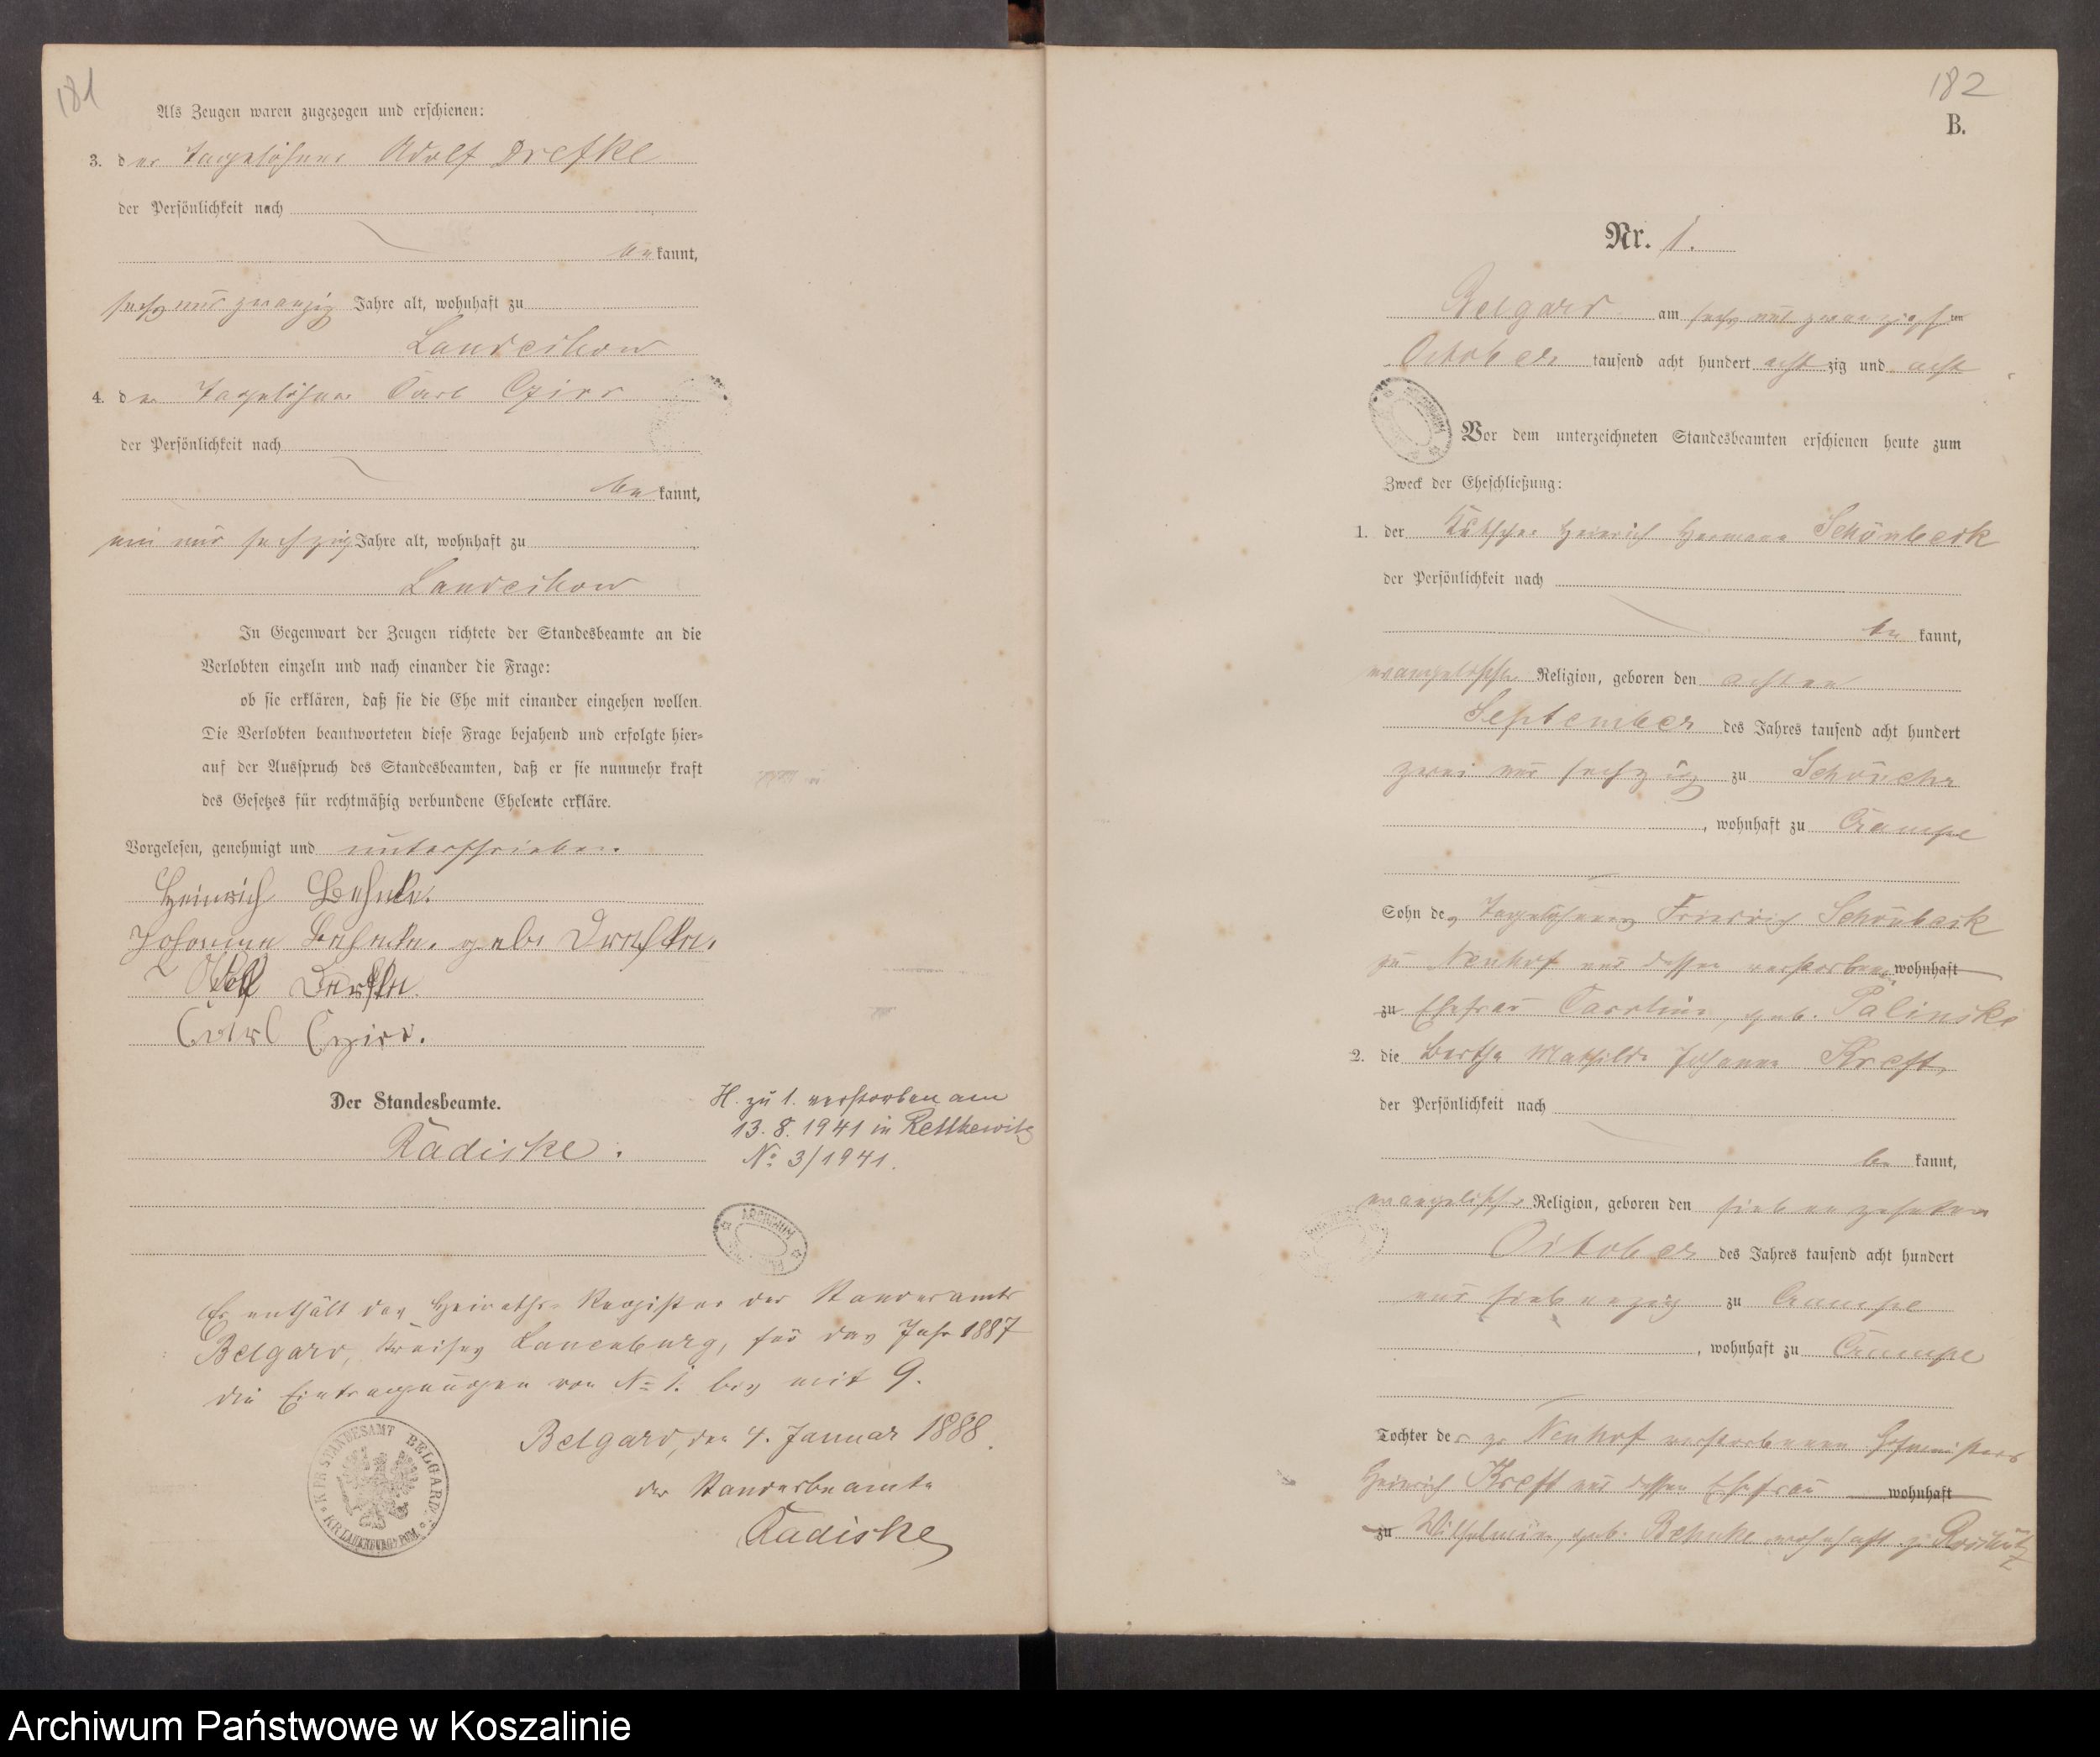 181
Als Zeugen waren zugezogen und erschienen:
3. der Tagelöhner Adolf Drefke
der Persönlichkeit nach
bekannt,
sechs und zwanzig Jahre alt, wohnhaft zu
Landechow
4. der Tagelöhner Carl Czirr
der Persönlichkeit nach
bekannt,
ein und sechzig Jahre alt, wohnhaft zu
Landechow
In Gegenwart der Zeugen richtete der Standesbeamte an die
Verlobten einzeln und nach einander die Frage:
ob sie erklären, daß sie die Ehe mit einander eingehen wollen.
Die Verlobten beantworteten diese Frage bejahend und erfolgte hier-
auf der Ausspruch des Standesbeamten, daß er sie nunmehr kraft
des Gesetzes für rechtmäßig verbundene Eheleute erkläre.
Vorgelesen, genehmigt und unterschrieben.
Heinrich Behnke.
Johanna Behnke. geb. Drefke.
Drefke.
Carl Czirr.
Der Standesbeamte.
Radiske.
H. zu 1. verstorben am
13. 8. 1941 in Rettkewitz
No 3/1941.
ARCHIWUM
Es enthält das Heiraths-Register des Standesamts
Belgard, Kreises Lauenburg, für das Jahr 1887
die Eintragungen von No 1. bis mit 9.
Belgard, den 4. Januar 1888.
der Standesbeamte
Radiske
KPR STANDESAMT BELGARD
KR. LAUENBURG i/POM
182
B.
Nr. 1.
Belgard am sechs und zwanzigsten
October tausend acht hundert achtzig und acht
Vor dem unterzeichneten Standesbeamten erschienen heute zum
Zweck der Eheschließung:
1. der Kutscher Heinrich Hermann Schönbeck
der Persönlichkeit nach
bekannt,
evangelischer Religion, geboren den achten
September des Jahres tausend acht hundert
zwei und sechzig zu Schönehr
, wohnhaft zu Crampe
Sohn des Tagelöhners Friedrich Schönbeck
zu Neuhof und dessen verstorbene wohnhaft
zu Ehefrau Caroline, geb. Palinske
2. die Bertha Mathilde Johanna Kreft,
der Persönlichkeit nach
bekannt,
evangelischer Religion, geboren den siebenzehnten
October des Jahres tausend acht hundert
und siebenzig zu Crampe
, wohnhaft zu Crampe
Tochter des zu Neuhof verstorbenen Hofmeisters
Heinrich Kreft und dessen Ehefrau wohnhaft
zu Wilhelmine, geb. Behnke wohnhaft z.
Archiwum Państwowe w Koszalinie